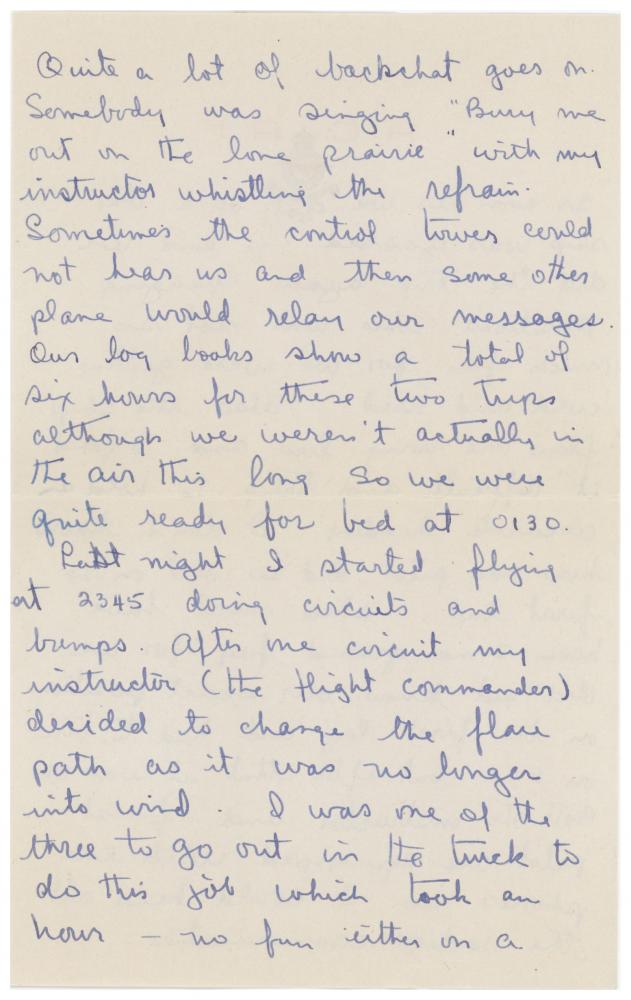 Quite a lot of backchat goes on.
Somebody was singing "Bury me
out on the lone prairie" with my
instructor whistling the refrain.
Sometimes the control tower could
not hear us and then some other
plane would relay our messages.
Our log books show a total of
six hours for these two trips
although we weren't actually in
the air this long so we were
quite ready for bed at 0130.
Last night I started flying
at 2345 doing circuits and
bumps. After one circuit my
instructor (the flight commander)
decided to change the flare
path as it was no longer
into wind. I was one of the
three to go out in the truck to
do this job which took an
hour – no fun either on a